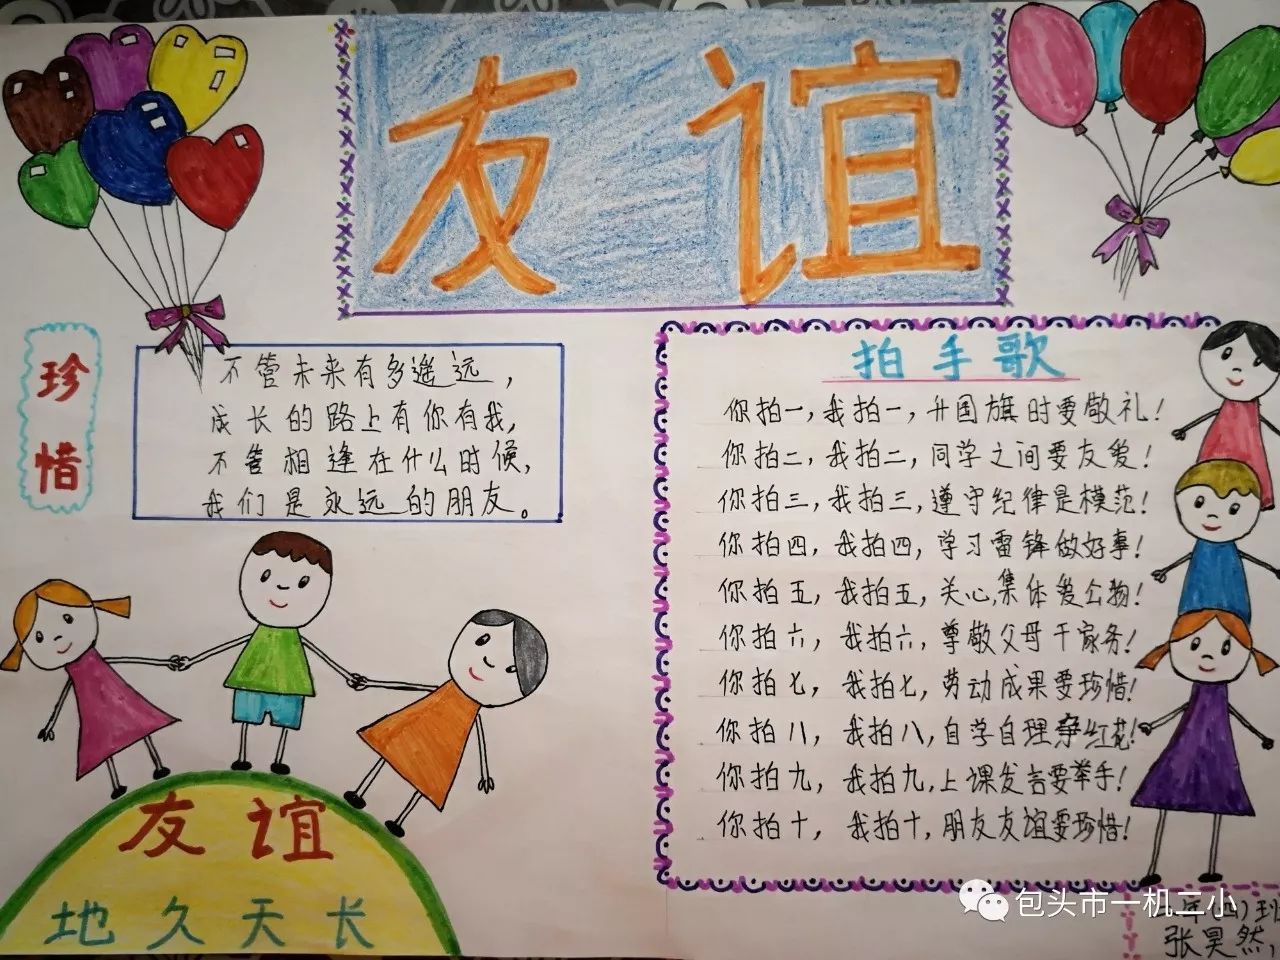 友谊
珍惜
不管未来有多遥远，
成长的路上有你有我，
不管相逢在什么时候，
我们是永远的朋友。
友谊
地久天长
拍手歌
你拍一，我拍一，升国旗时要敬礼！
你拍二，我拍二，同学之间要友爱！
你拍三，我拍三，遵守纪律是模范！
你拍四，我拍四，学习雷锋做好事！
你拍五，我拍五，关心集体爱公物！
你拍六，我拍六，尊敬父母干家务！
你拍七，我拍七，劳动成果要珍惜！
你拍八，我拍八，自学自理争红花！
你拍九，我拍九，上课发言要举手！
你拍十，我拍十，朋友友谊要珍惜！
包头市一机二小
年(四)班
张昊然，